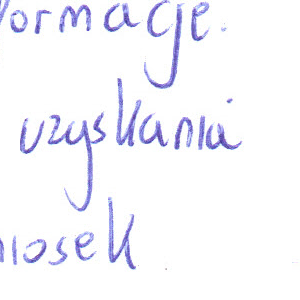 formacje.
uzyskania
niosek